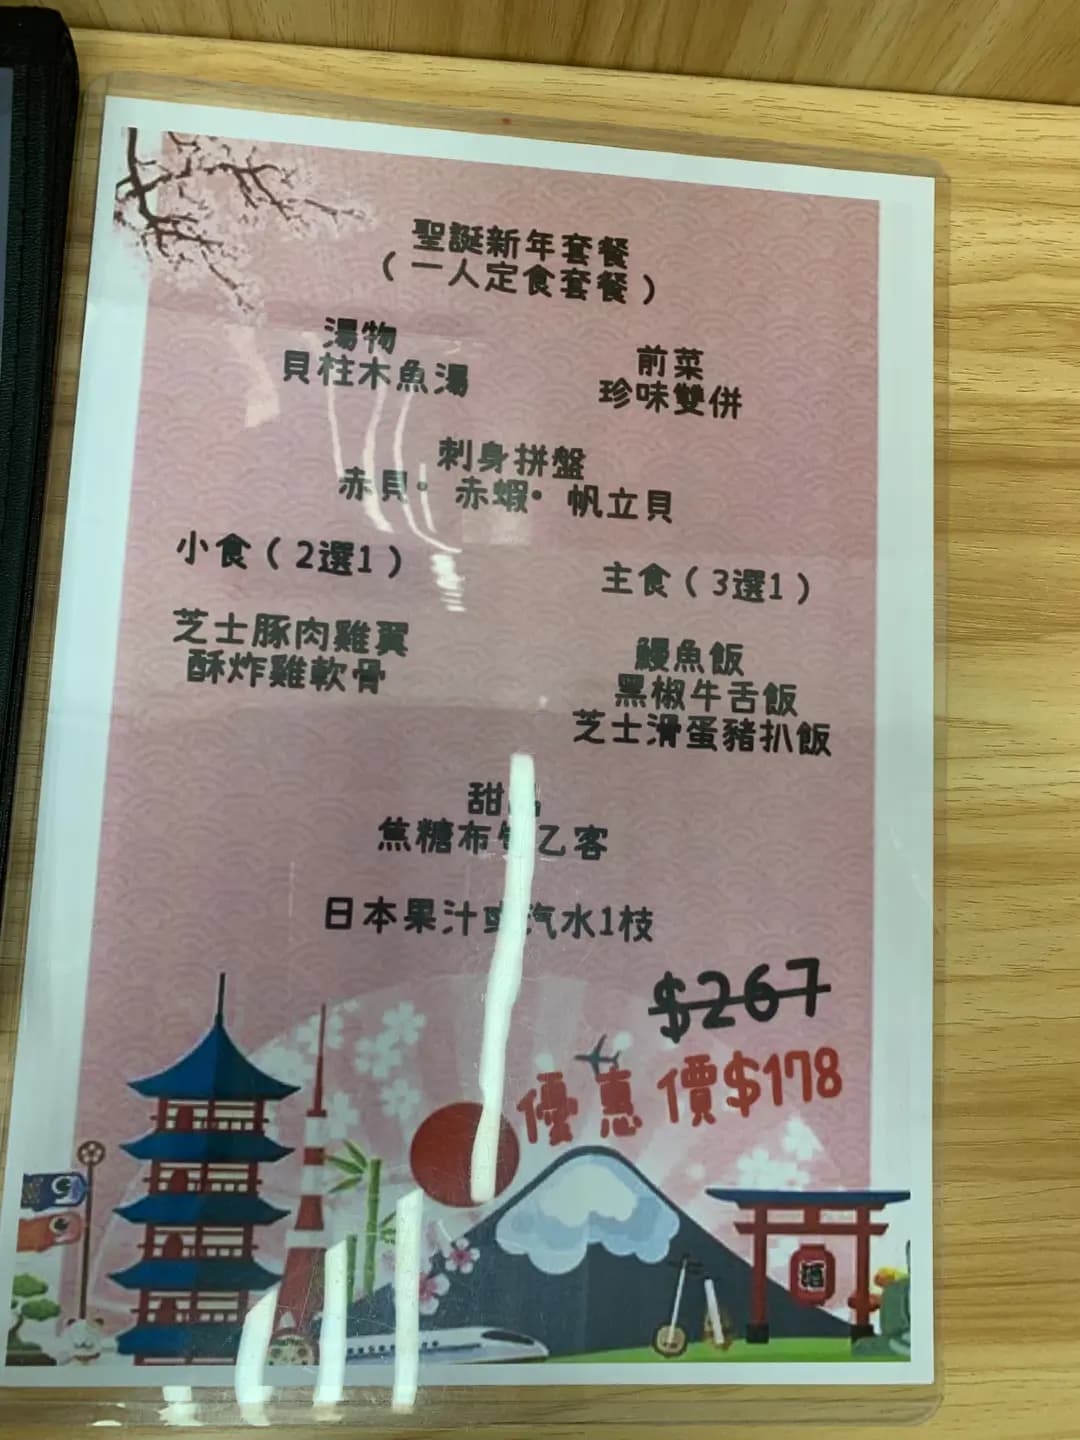 聖誕新年套餐
(一人定食套餐)
湯物
貝柱木魚湯
前菜
珍味雙併
刺身拼盤
赤貝·赤蝦·帆立貝
小食(2選1)
芝士豚肉雞翼
酥炸雞軟骨
主食(3選1)
鰻魚飯
黑椒牛舌飯
芝士滑蛋豬扒飯
甜
焦糖布乙客
日本果汁或汽水1枝
$267
優惠價$178
酒